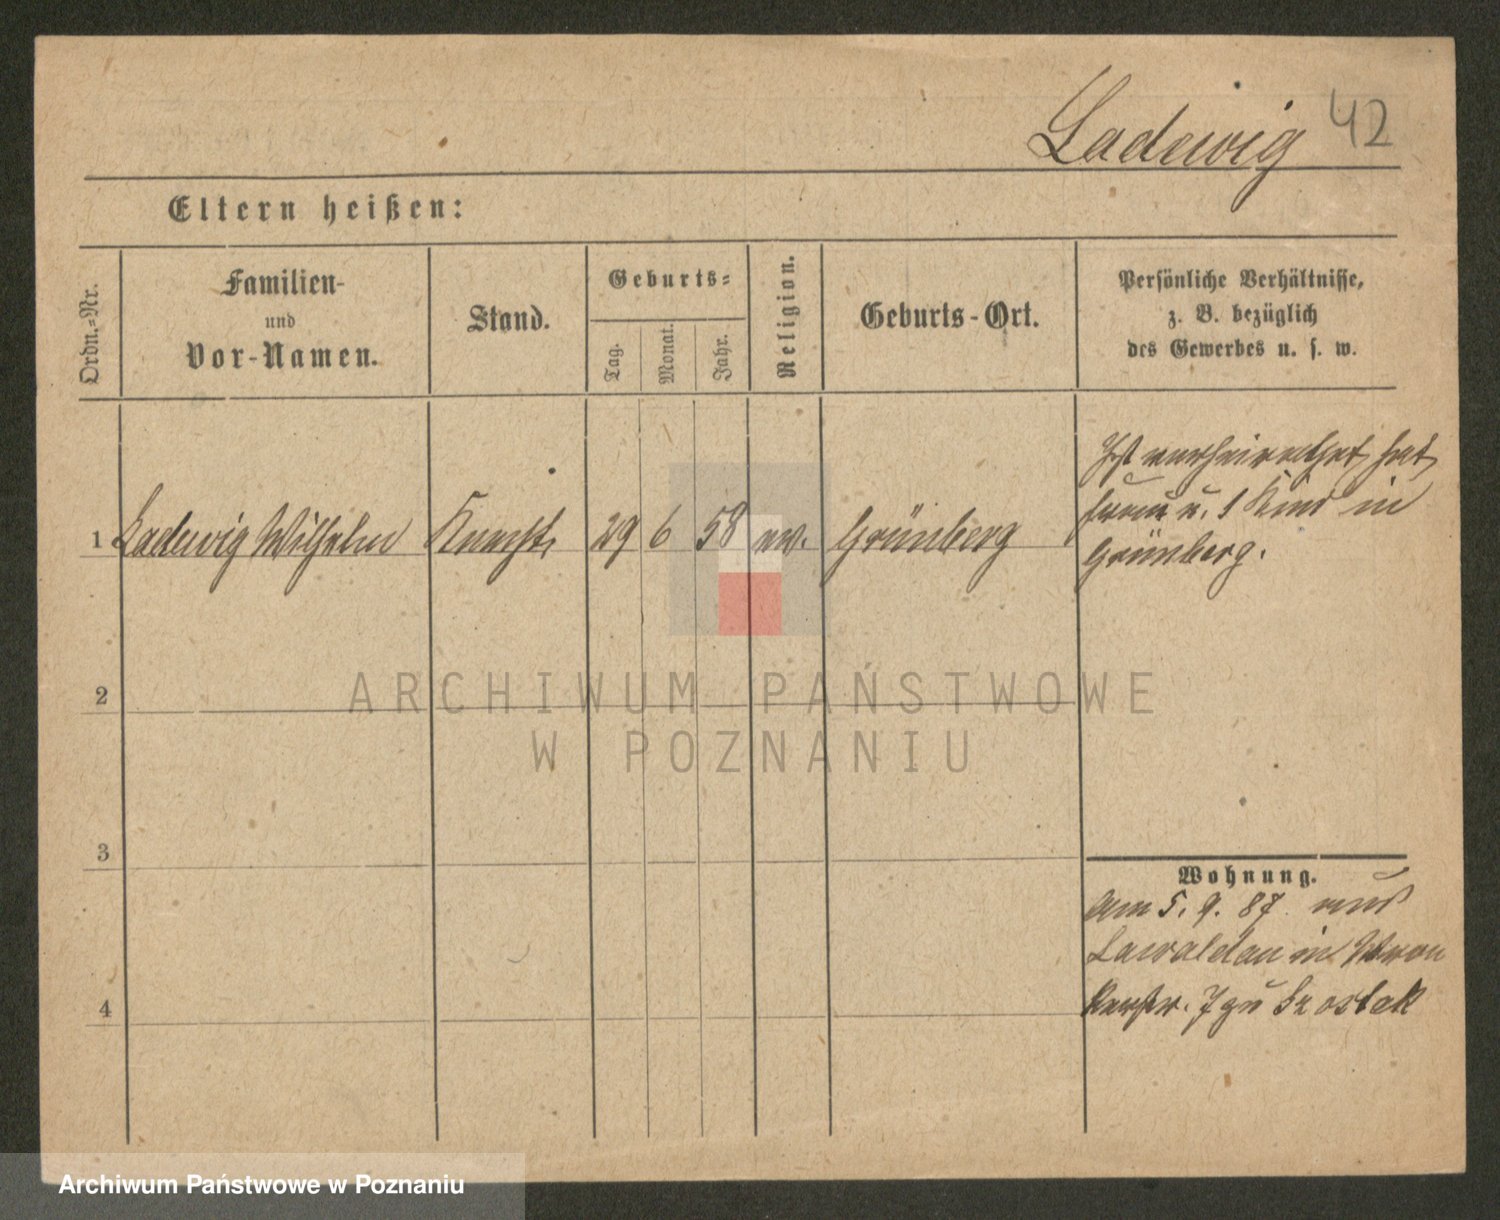 Ladewig 42
Eltern heißen:
Ordn.=Nr.
Familien-
und
Vor-Namen.
Stand.
Geburts=
Tag.
Monat.
Jahr.
Religion.
Geburts-Ort.
Persönliche Verhältnisse,
z. B. bezüglich
des Gewerbes u. s. w.
1 Ladewig Wilhelm Knecht 29 6 58 ev. Grünberg
Ist verheirathet hat
Frau u. 1 Kind in
Grünberg.
2
3
4
Wohnung.
Am 5. 9. 87 aus
Lawaldau in
7 zu Szostak
ARCHIWUM PAŃSTWOWE
W POZNANIU
Archiwum Państwowe w Poznaniu